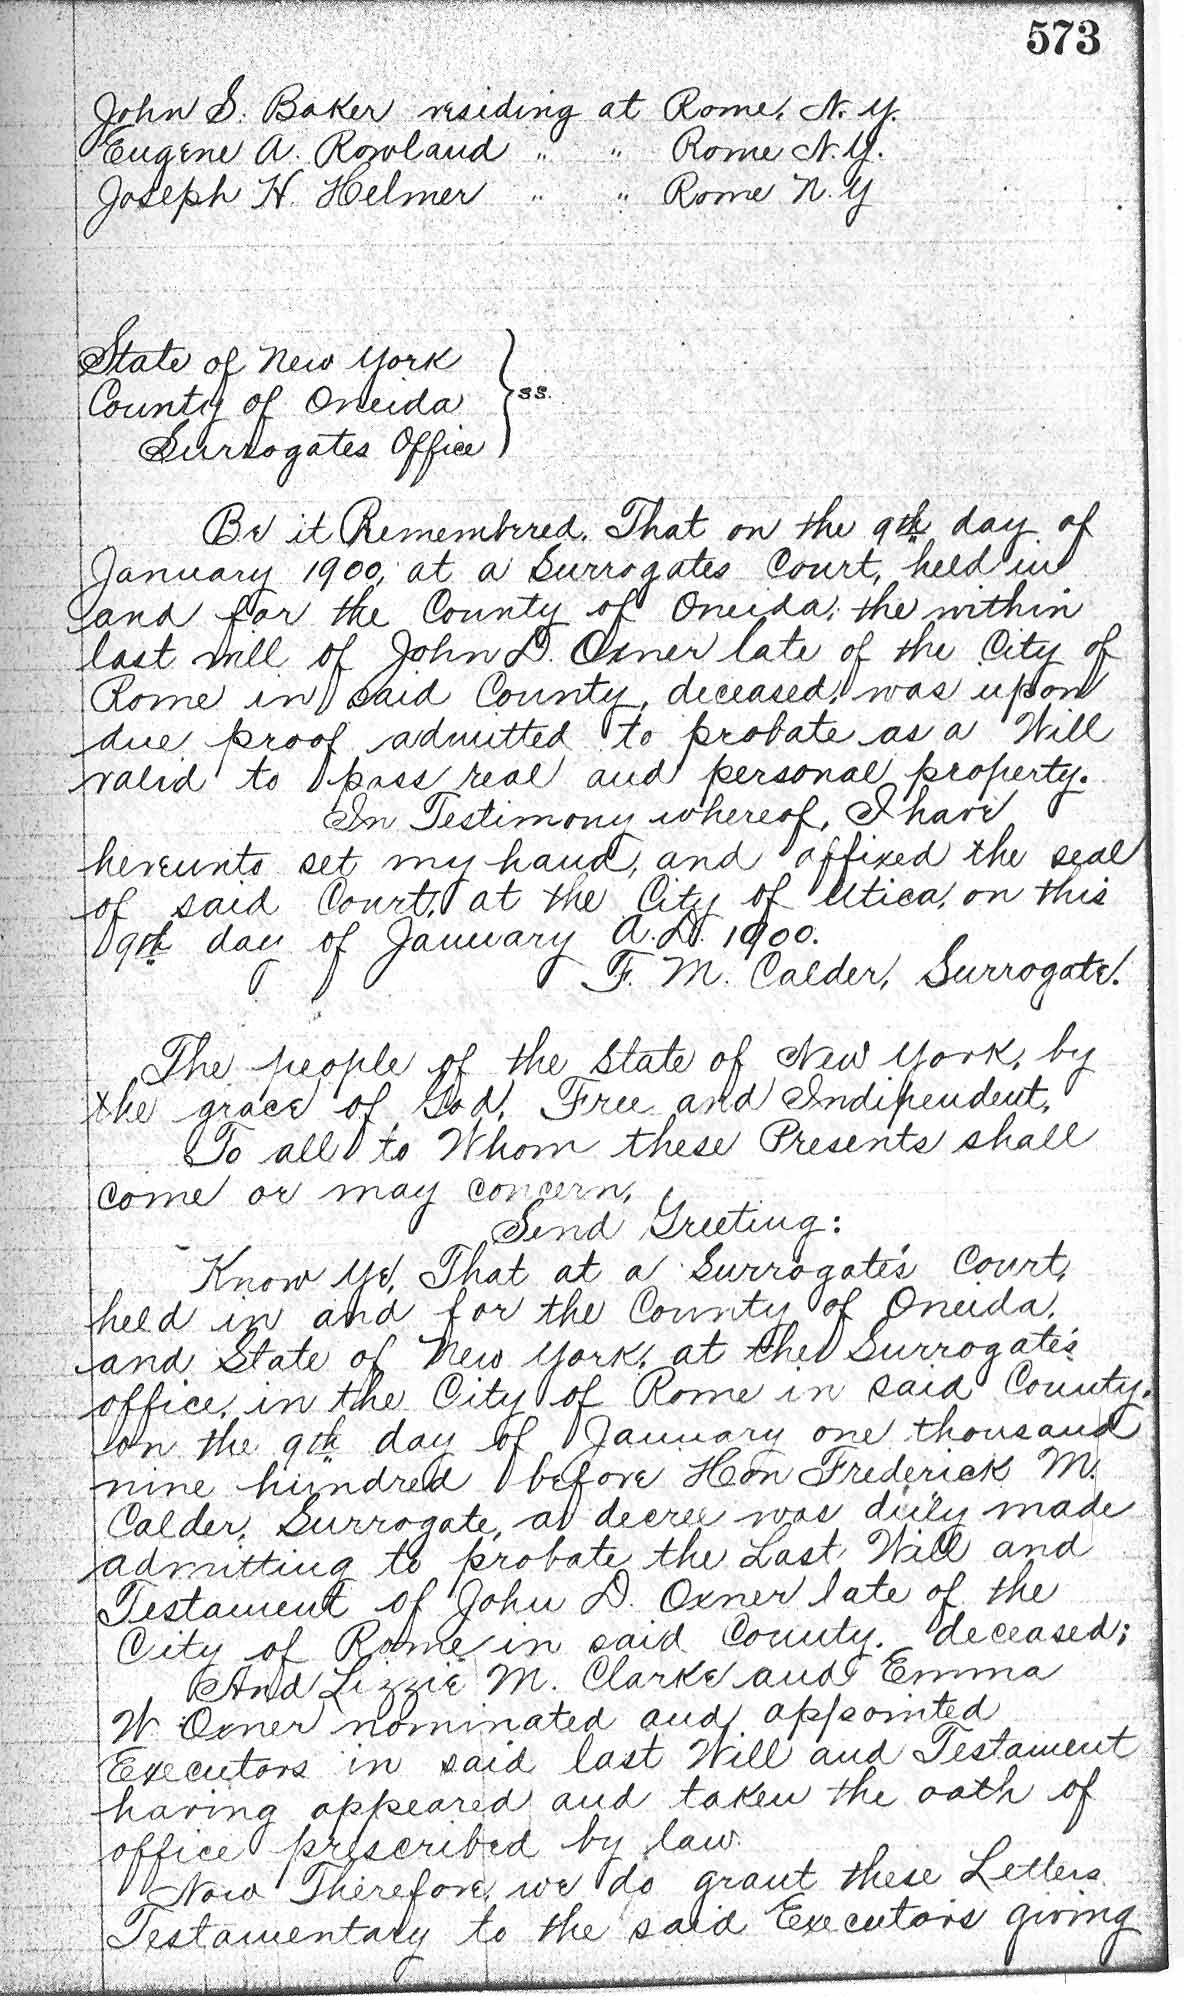 573
John S. Baker residing at Rome, N. Y.
Eugene A. Rowland " " Rome N. Y.
Joseph H. Helmer " " Rome N. Y
State of New York
County of Oneida } ss.
Surrogates Office
Be it Remembered, That on the 9th day of
January 1900, at a Surrogates Court, held in
and for the County of Oneida, the within
last will of John D. Oxner late of the City of
Rome in said County, deceased, was upon
due proof admitted to probate as a Will
valid to pass real and personal property.
In Testimony whereof, I have
hereunto set my hand, and affixed the seal
of said Court, at the City of Utica, on this
9th day of January A. D. 1900.
F. M. Calder, Surrogate.
The people of the State of New York, by
the grace of God, Free and Independent,
To all to Whom these Presents shall
come or may concern,
Send Greeting:
Know Ye, That at a Surrogate's Court,
held in and for the County of Oneida,
and State of New York, at the Surrogate's
office, in the City of Rome in said County,
on the 9th day of January one thousand
nine hundred before Hon Frederick M.
Calder, Surrogate, a decree was duly made
admitting to probate the Last Will and
Testament of John D. Oxner late of the
City of Rome in said County. deceased;
And Lizzie M. Clarke and Emma
W. Oxner nominated and appointed
Executors in said last Will and Testament
having appeared and taken the oath of
office prescribed by law.
Now Therefore, we do grant these Letters
Testamentary to the said Executors giving